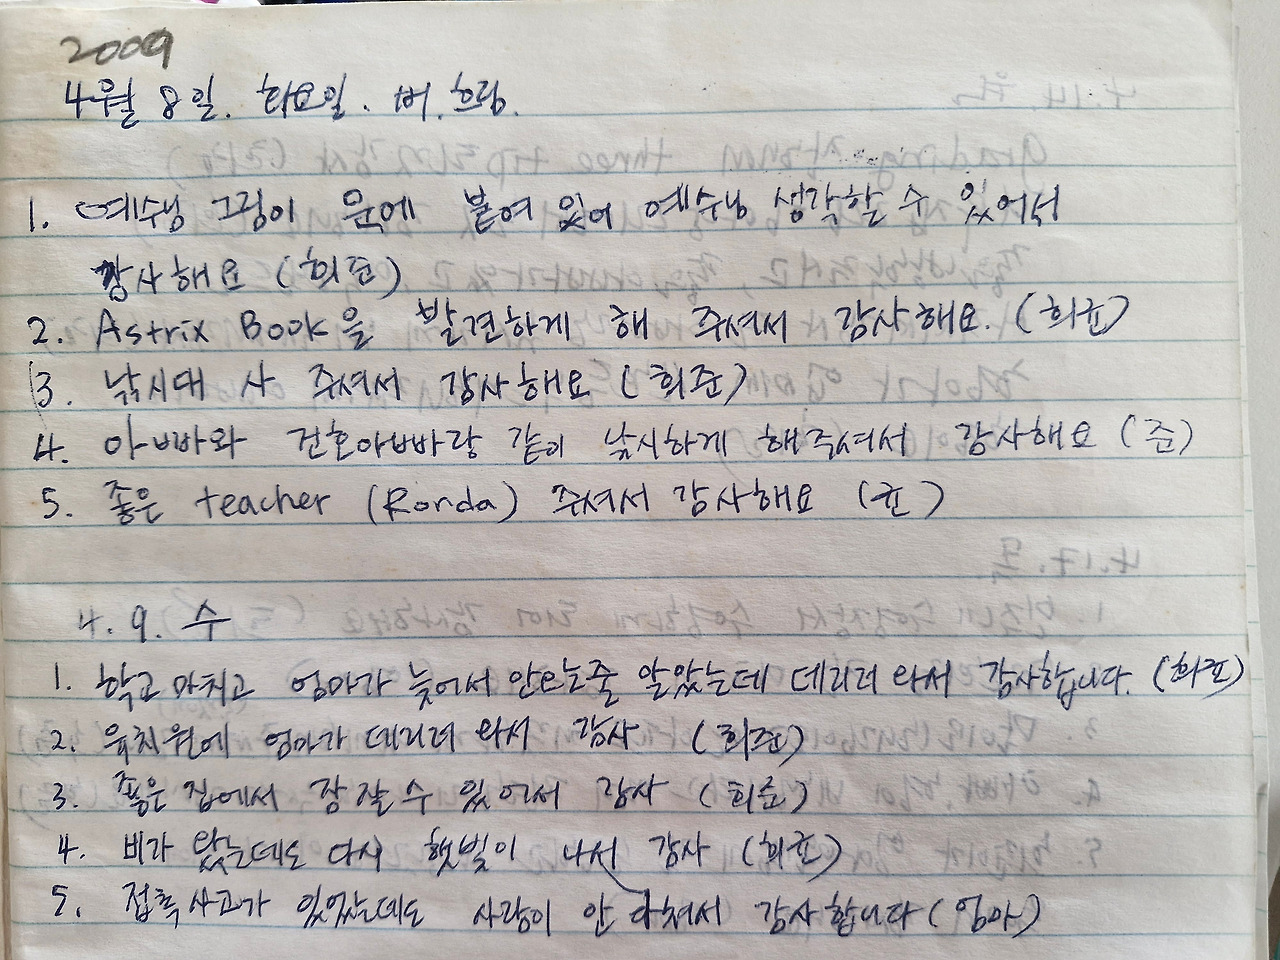 2009
4월 8일. 화요일. 비. 흐림.
1. 예수님 그림이 문에 붙여 있어 예수님 생각할 수 있어서
감사해요 (희준)
2. Astrix Book을 발견하게 해 주셔서 감사해요. (희윤)
3. 낚시대 사 주셔서 감사해요 (희준)
4. 아빠와 건호아빠랑 같이 낚시하게 해주셔서 감사해요 (준)
5. 좋은 teacher (Ronda) 주셔서 감사해요 (윤)
4. 9. 수
1. 학교 마치고 엄마가 늦어서 안오는줄 알았는데 데리러 와서 감사합니다. (희윤)
2. 유치원에 엄마가 데리러 와서 감사 (희준)
3. 좋은 집에서 잠 잘 수 있어서 감사 (희준)
4. 비가 왔는데도 다시 햇빛이 나서 감사 (희윤)
5. 접촉사고가 있었는데도 사람이 안 다쳐서 감사합니다 (엄마)